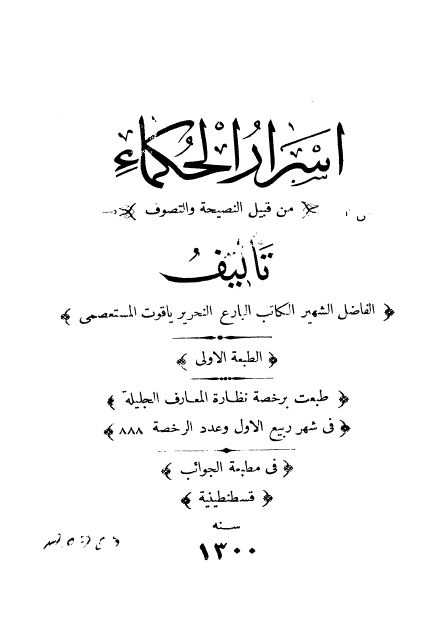 اسرار الحكماء
من قبيل النصيحة والتصوف
تأليف
﴿ الفاضل الشهير الكاتب البارع النحرير ياقوت المستعصمى ﴾
﴿ الطبعة الاولى ﴾
﴿ طبعت برخصة نظارة المعارف الجليلة ﴾
﴿ فى شهر ربيع الاول وعدد الرخصة ٨٨٨ ﴾
﴿ فى مطبعة الجوائب ﴾
﴿ قسطنطينية ﴾
سنه
١٣٠٠